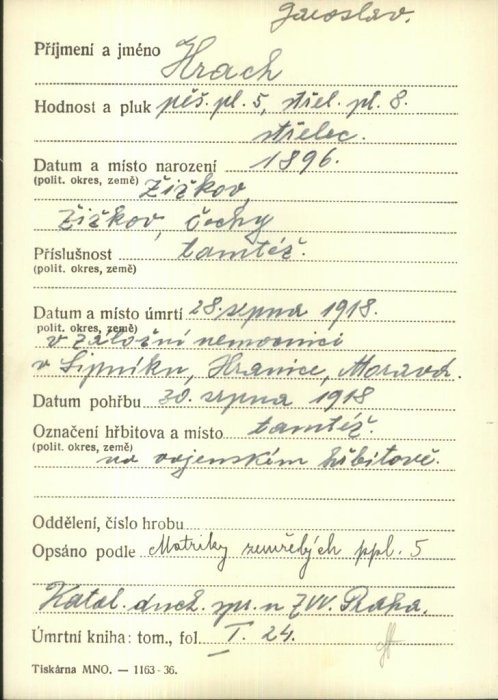 Jaroslav.
Příjmení a jméno Hrach
Hodnost a pluk pěš. pl. 5, střel. pl. 8.
střelec.
Datum a místo narození 1896.
(polit. okres, země) Žižkov,
Žižkov, Čechy
Příslušnost tamtéž.
(polit. okres, země)
Datum a místo úmrtí 28. srpna 1918.
polit. okres, země)
v záložní nemocnici
v Lipníku, Hranice, Morava.
Datum pohřbu 30. srpna 1918
Označení hřbitova a místo tamtéž.
(polit. okres, země) na vojenském hřbitově.
Oddělení, číslo hrobu
Opsáno podle Matriky zemřelých ppl. 5
Katol. duch. spr. u ZVV. Praha.
Úmrtní kniha: tom., fol. I. 24.
Tiskárna MNO. — 1163-36.